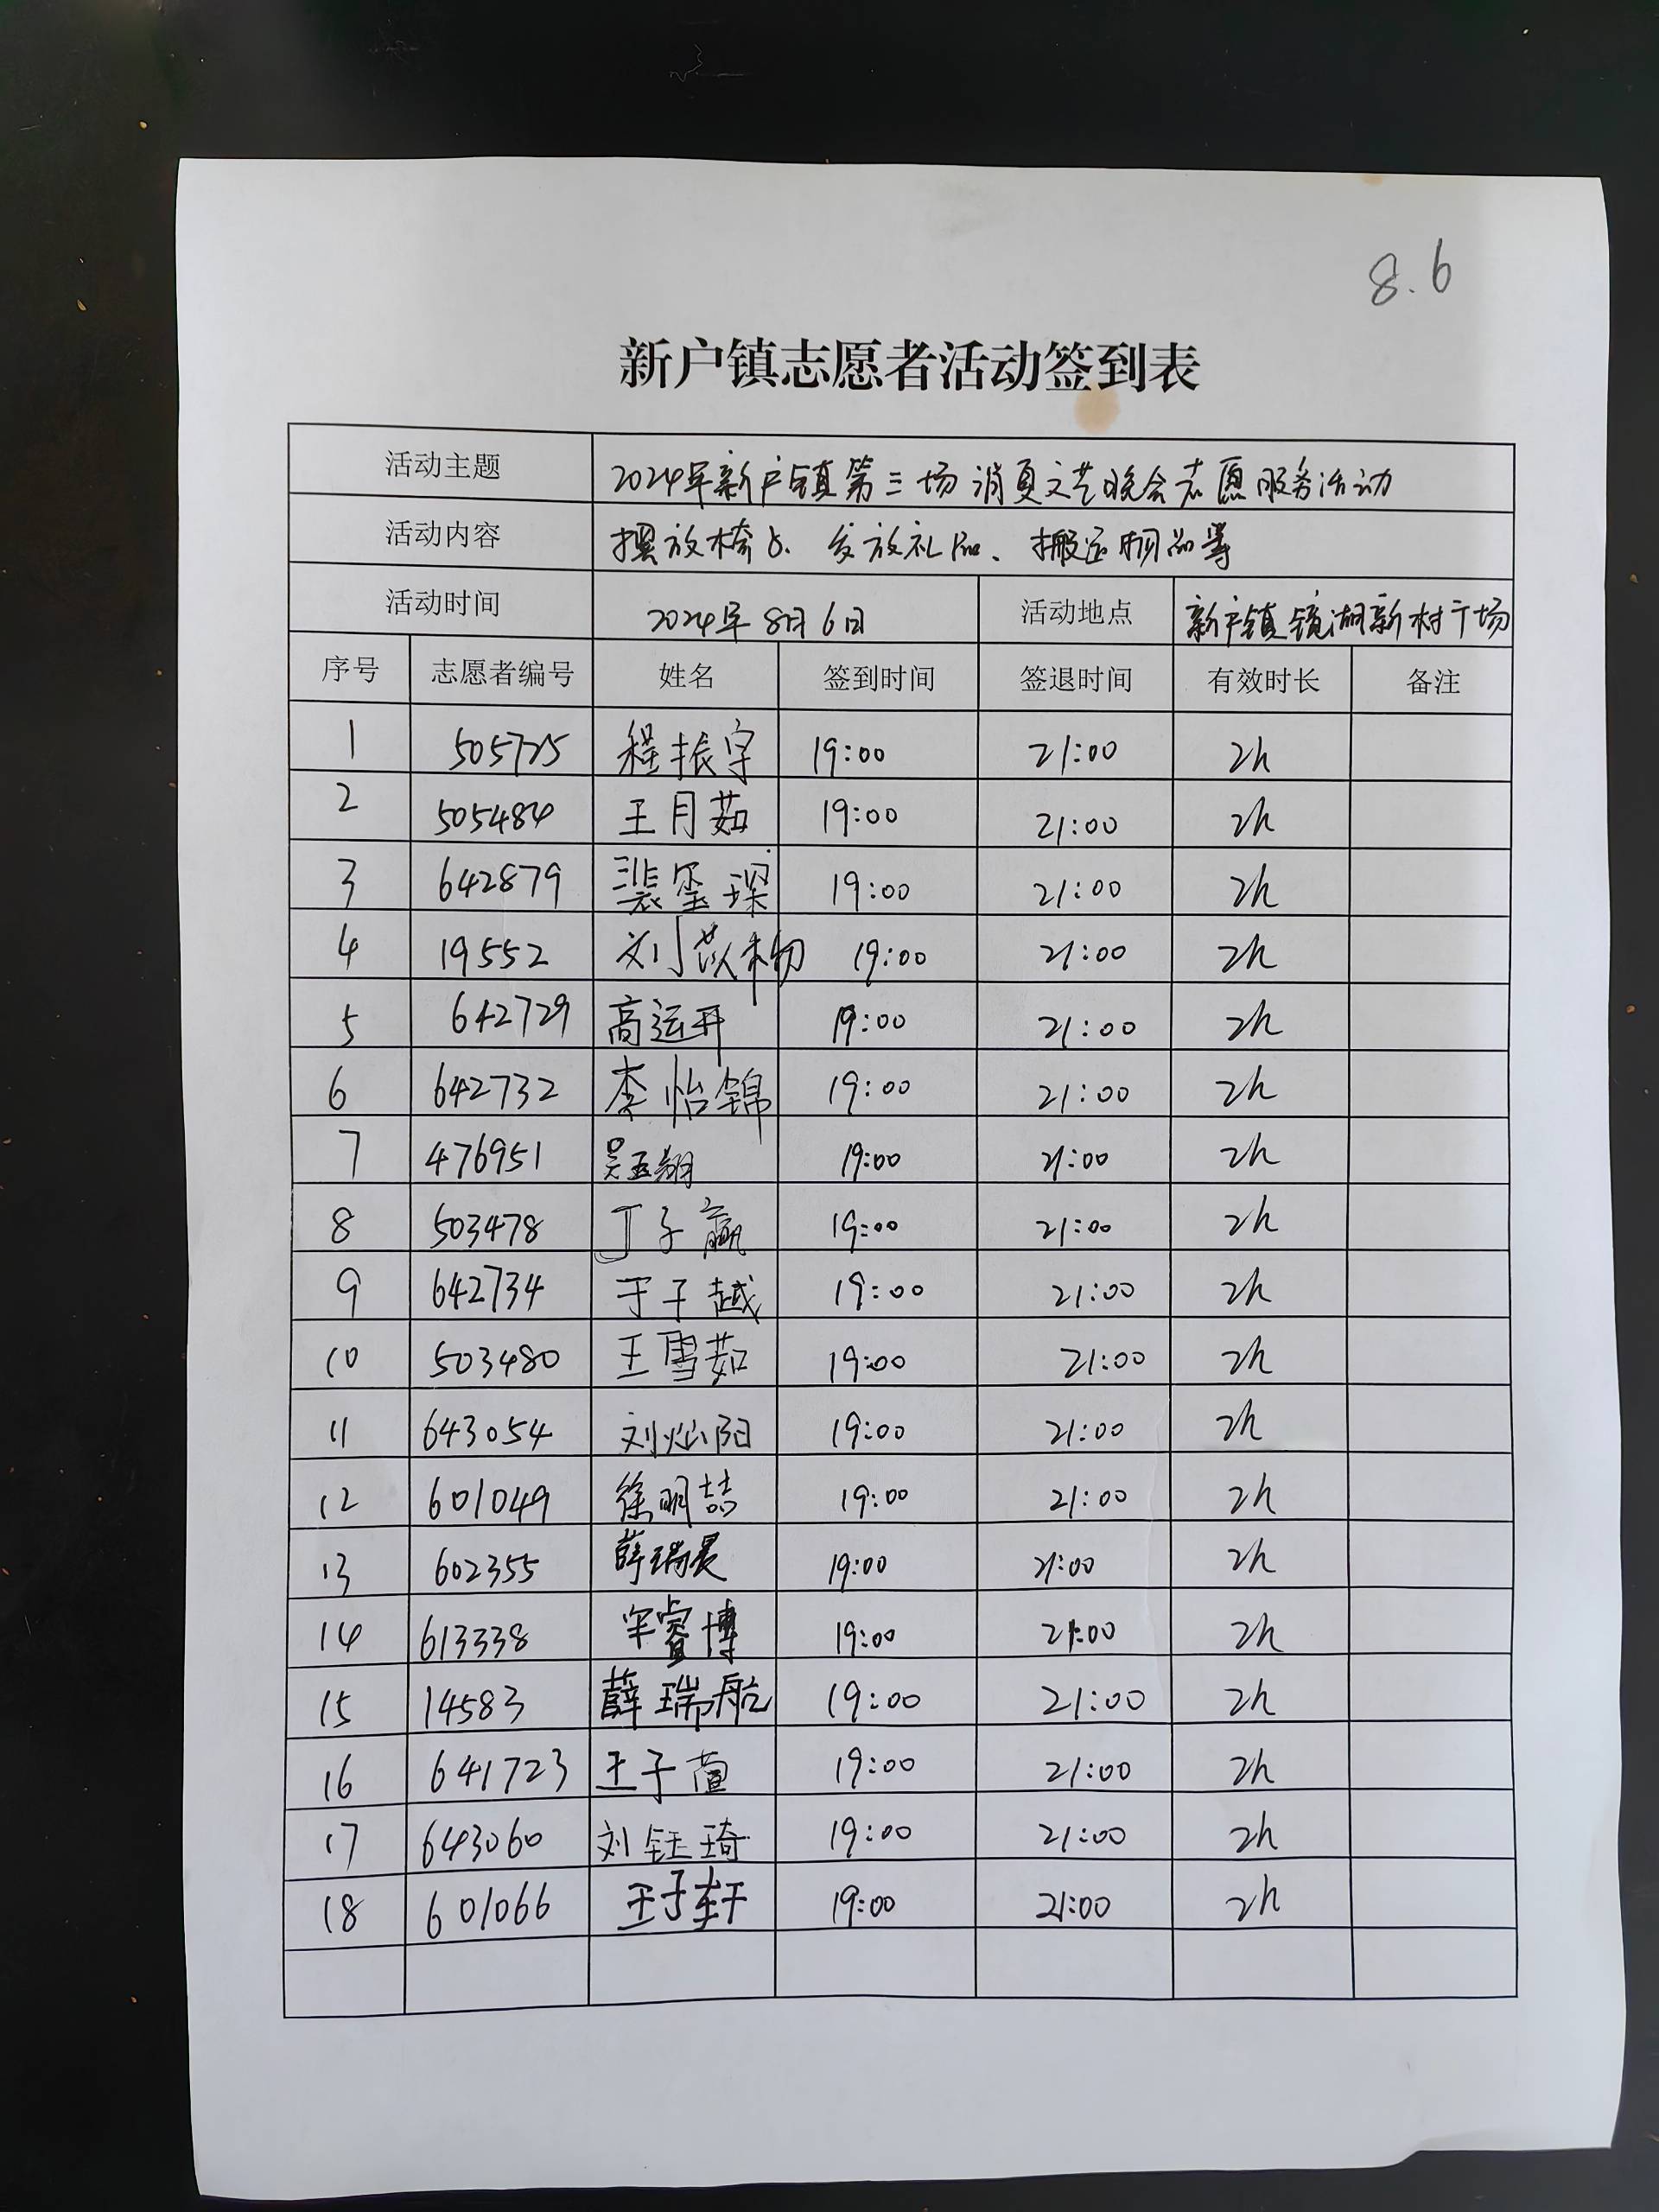 8.6
新户镇志愿者活动签到表
活动主题 2024年新户镇第三场消夏文艺晚会志愿服务活动
活动内容 摆放椅子、发放礼品、搬运物品等
活动时间 2024年8月6日 活动地点 新户镇镜湖新村广场
序号 志愿者编号 姓名 签到时间 签退时间 有效时长 备注
1 505725 程振宇 19:00 21:00 2h
2 505484 王月茹 19:00 21:00 2h
3 642879 裴玺琛 19:00 21:00 2h
4 19552 刘 19:00 21:00 2h
5 642729 高运开 19:00 21:00 2h
6 642732 李怡锦 19:00 21:00 2h
7 476951 吴玉翔 19:00 21:00 2h
8 503478 丁子赢 19:00 21:00 2h
9 642734 于子越 19:00 21:00 2h
10 503480 王雪茹 19:00 21:00 2h
11 643054 刘灿阳 19:00 21:00 2h
12 601049 徐明喆 19:00 21:00 2h
13 602355 薛瑞晨 19:00 21:00 2h
14 613338 睿博 19:00 21:00 2h
15 14583 薛瑞航 19:00 21:00 2h
16 641723 王子萱 19:00 21:00 2h
17 643060 刘钰琦 19:00 21:00 2h
18 601066 王子轩 19:00 21:00 2h